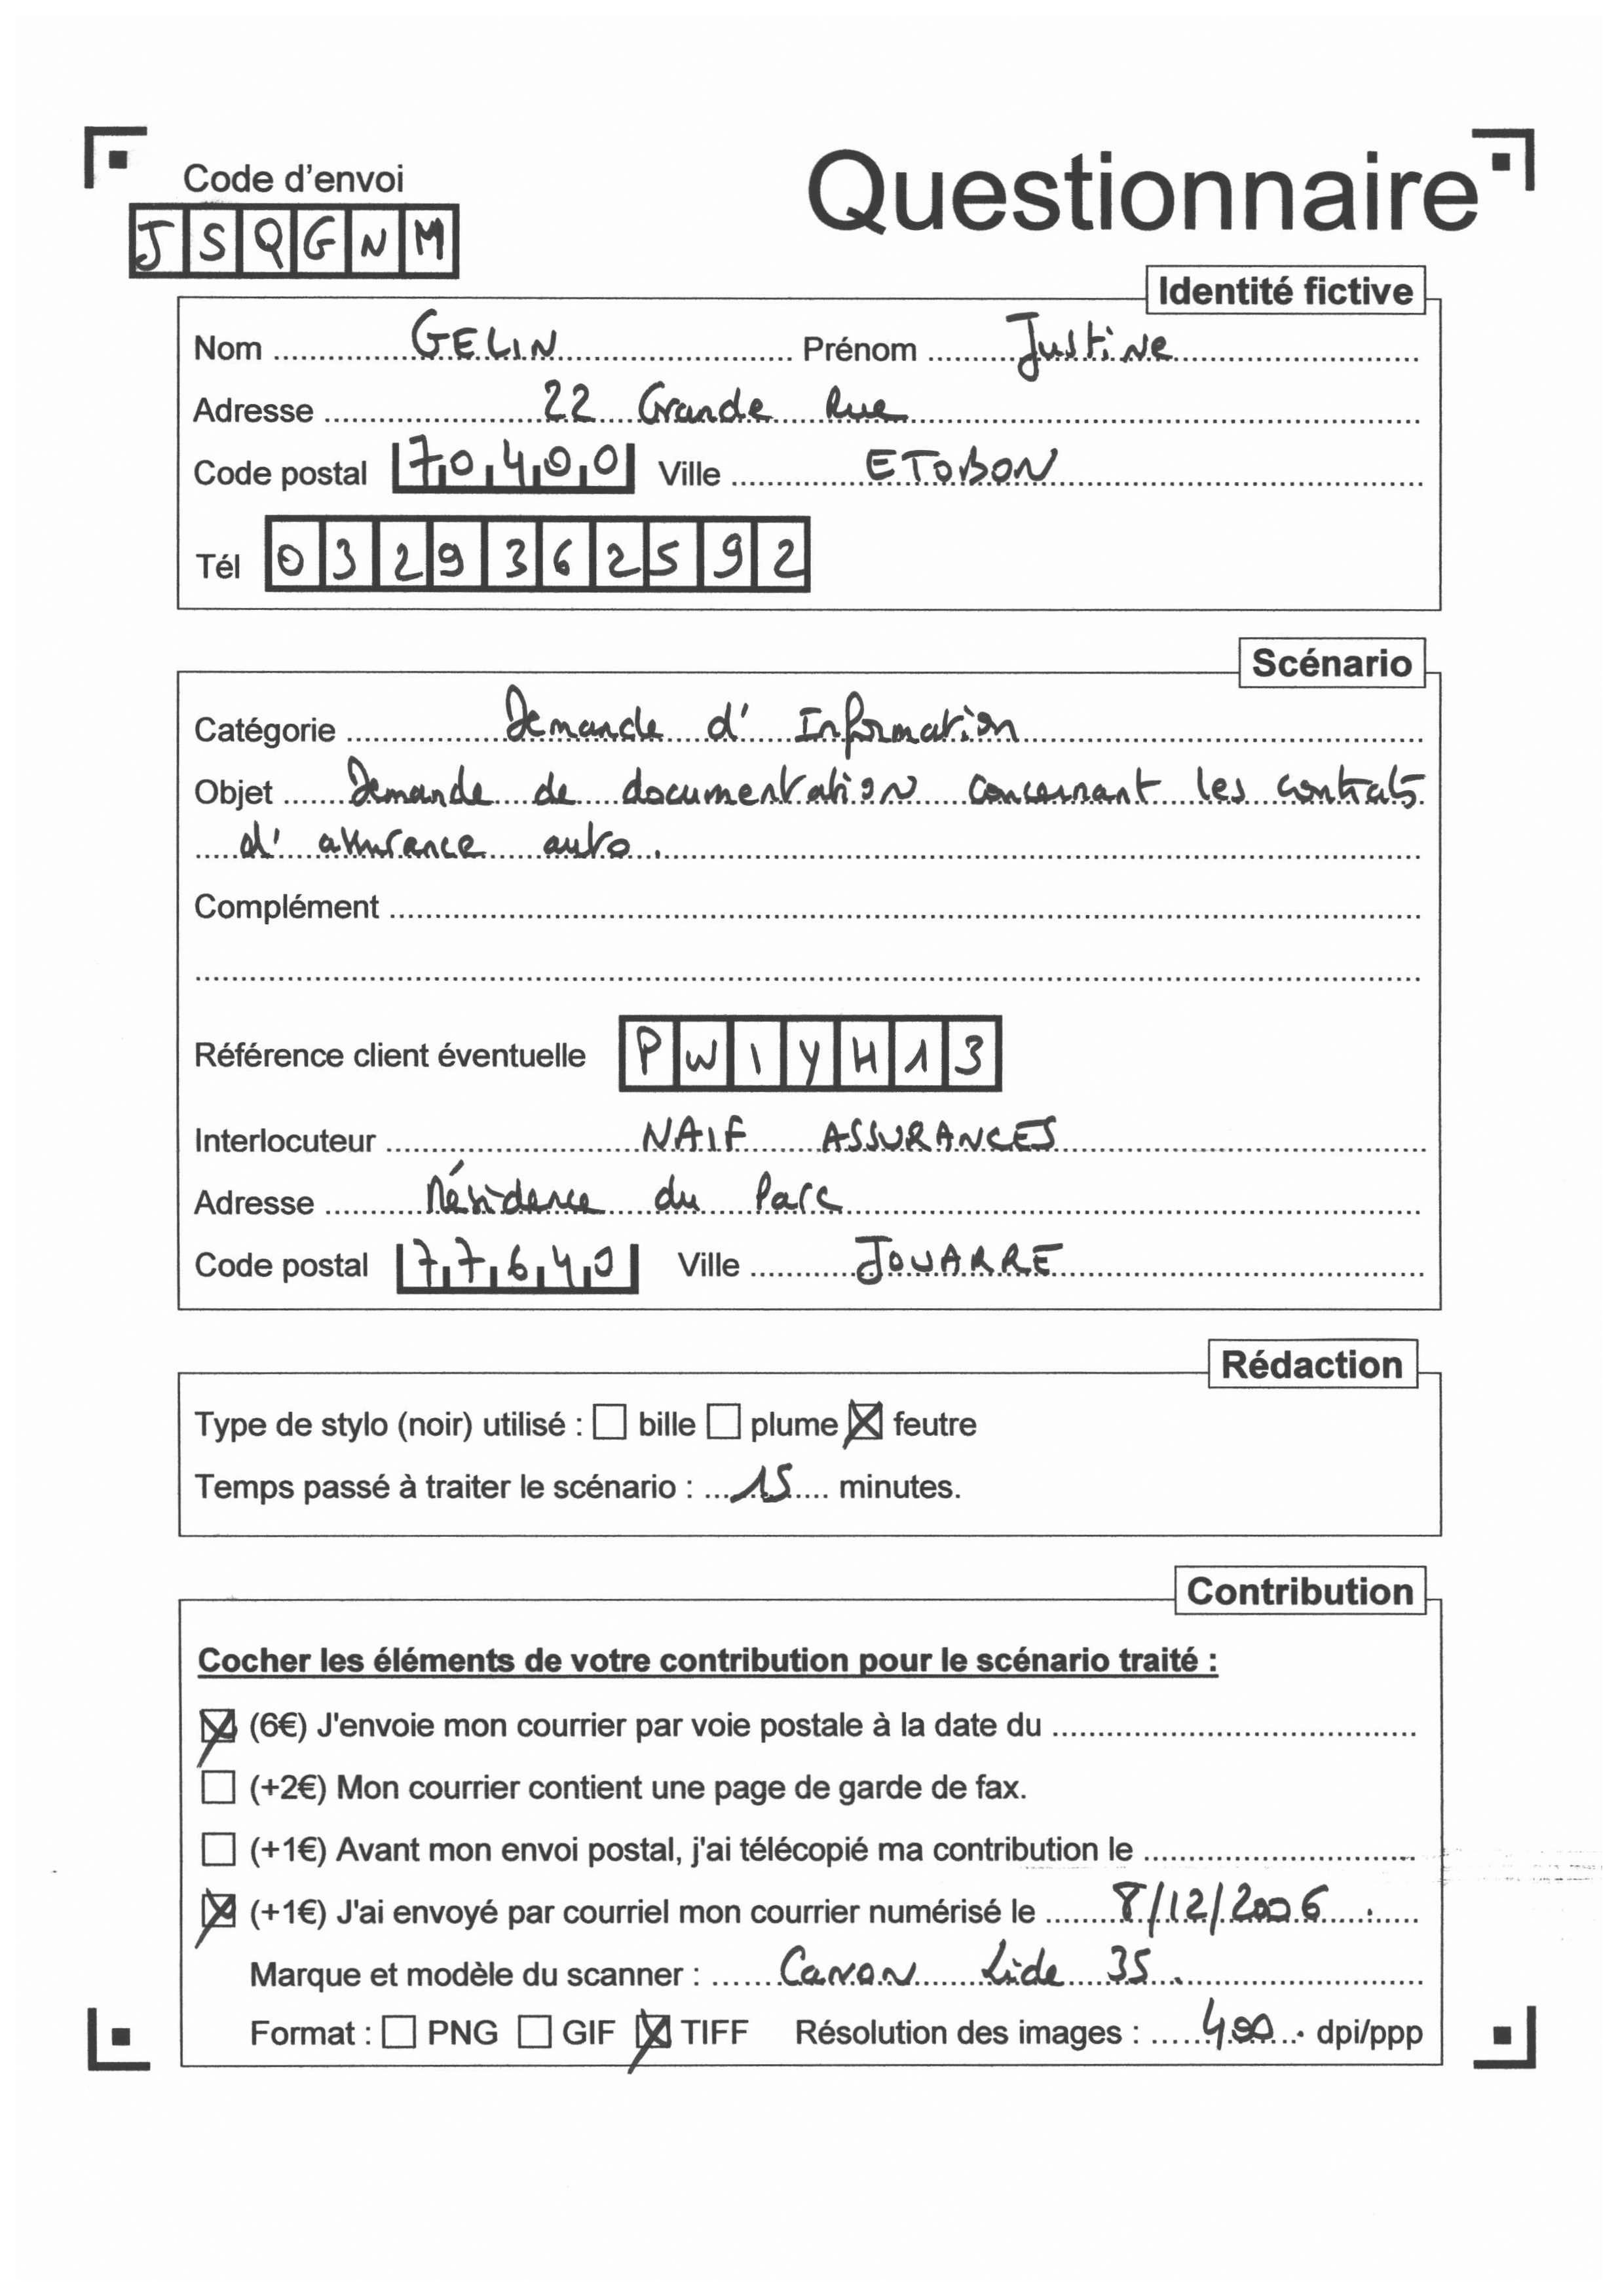 Code d'envoi
Questionnaire
JSQGNM
Identité fictive
Nom GELIN Prénom Justine
Adresse 22 Grande Rue
Code postal 70400 Ville ETOBON
Tél 0329362592
Scénario
Catégorie Demande d'Information
Objet Demande de documentation concernant les contrats
d'assurance auto.
Complément
Référence client éventuelle PWIYH13
Interlocuteur NAIF ASSURANCES
Adresse Résidence du Parc
Code postal 77640 Ville JOUARRE
Rédaction
Type de stylo (noir) utilisé : bille plume feutre
Temps passé à traiter le scénario : 15 minutes.
Contribution
Cocher les éléments de votre contribution pour le scénario traité :
(6€) J'envoie mon courrier par voie postale à la date du
(+2€) Mon courrier contient une page de garde de fax.
(+1€) Avant mon envoi postal, j'ai télécopié ma contribution le
(+1€) J'ai envoyé par courriel mon courrier numérisé le 8/12/2006
Marque et modèle du scanner : Canon Lide 35.
Format : PNG GIF TIFF Résolution des images : 400 dpi/ppp